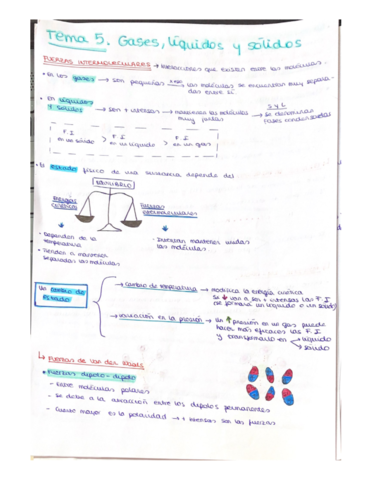 Tema 5. Gases, líquidos y sólidos
FUERZAS INTERMOLECULARES → Interacciones que existen entre las moléculas.
• En los gases → son pequeñas → las moléculas se encuentran muy separadas entre sí.
• En líquidos y sólidos → son + intensas → mantienen las moléculas muy juntas → S y L se denominan fases condensadas
F. I. en un sólido > F. I. en un líquido > F. I. en un gas
• El estado físico de una sustancia depende del
EQUILIBRIO
Energía cinética
Fuerzas intermoleculares
• Dependen de la temperatura
• Tienden a mantener separadas las moléculas
• Intentan mantener unidas las moléculas.
Un cambio de estado
→ cambio de temperatura → modifica la energía cinética
se ↓ van a ser + intensas las F. I.
(se formará un líquido o un sólido)
→ variación en la presión → un ↑ presión en un gas puede
hacer más eficaces las F. I.
y transformarlo en → líquido
→ sólido
↳ Fuerzas de van der Waals
• Fuerzas dipolo-dipolo
- Entre moléculas polares
- Se debe a la atracción entre los dipolos permanentes
- Cuanto mayor es la polaridad → + intensas son las fuerzas